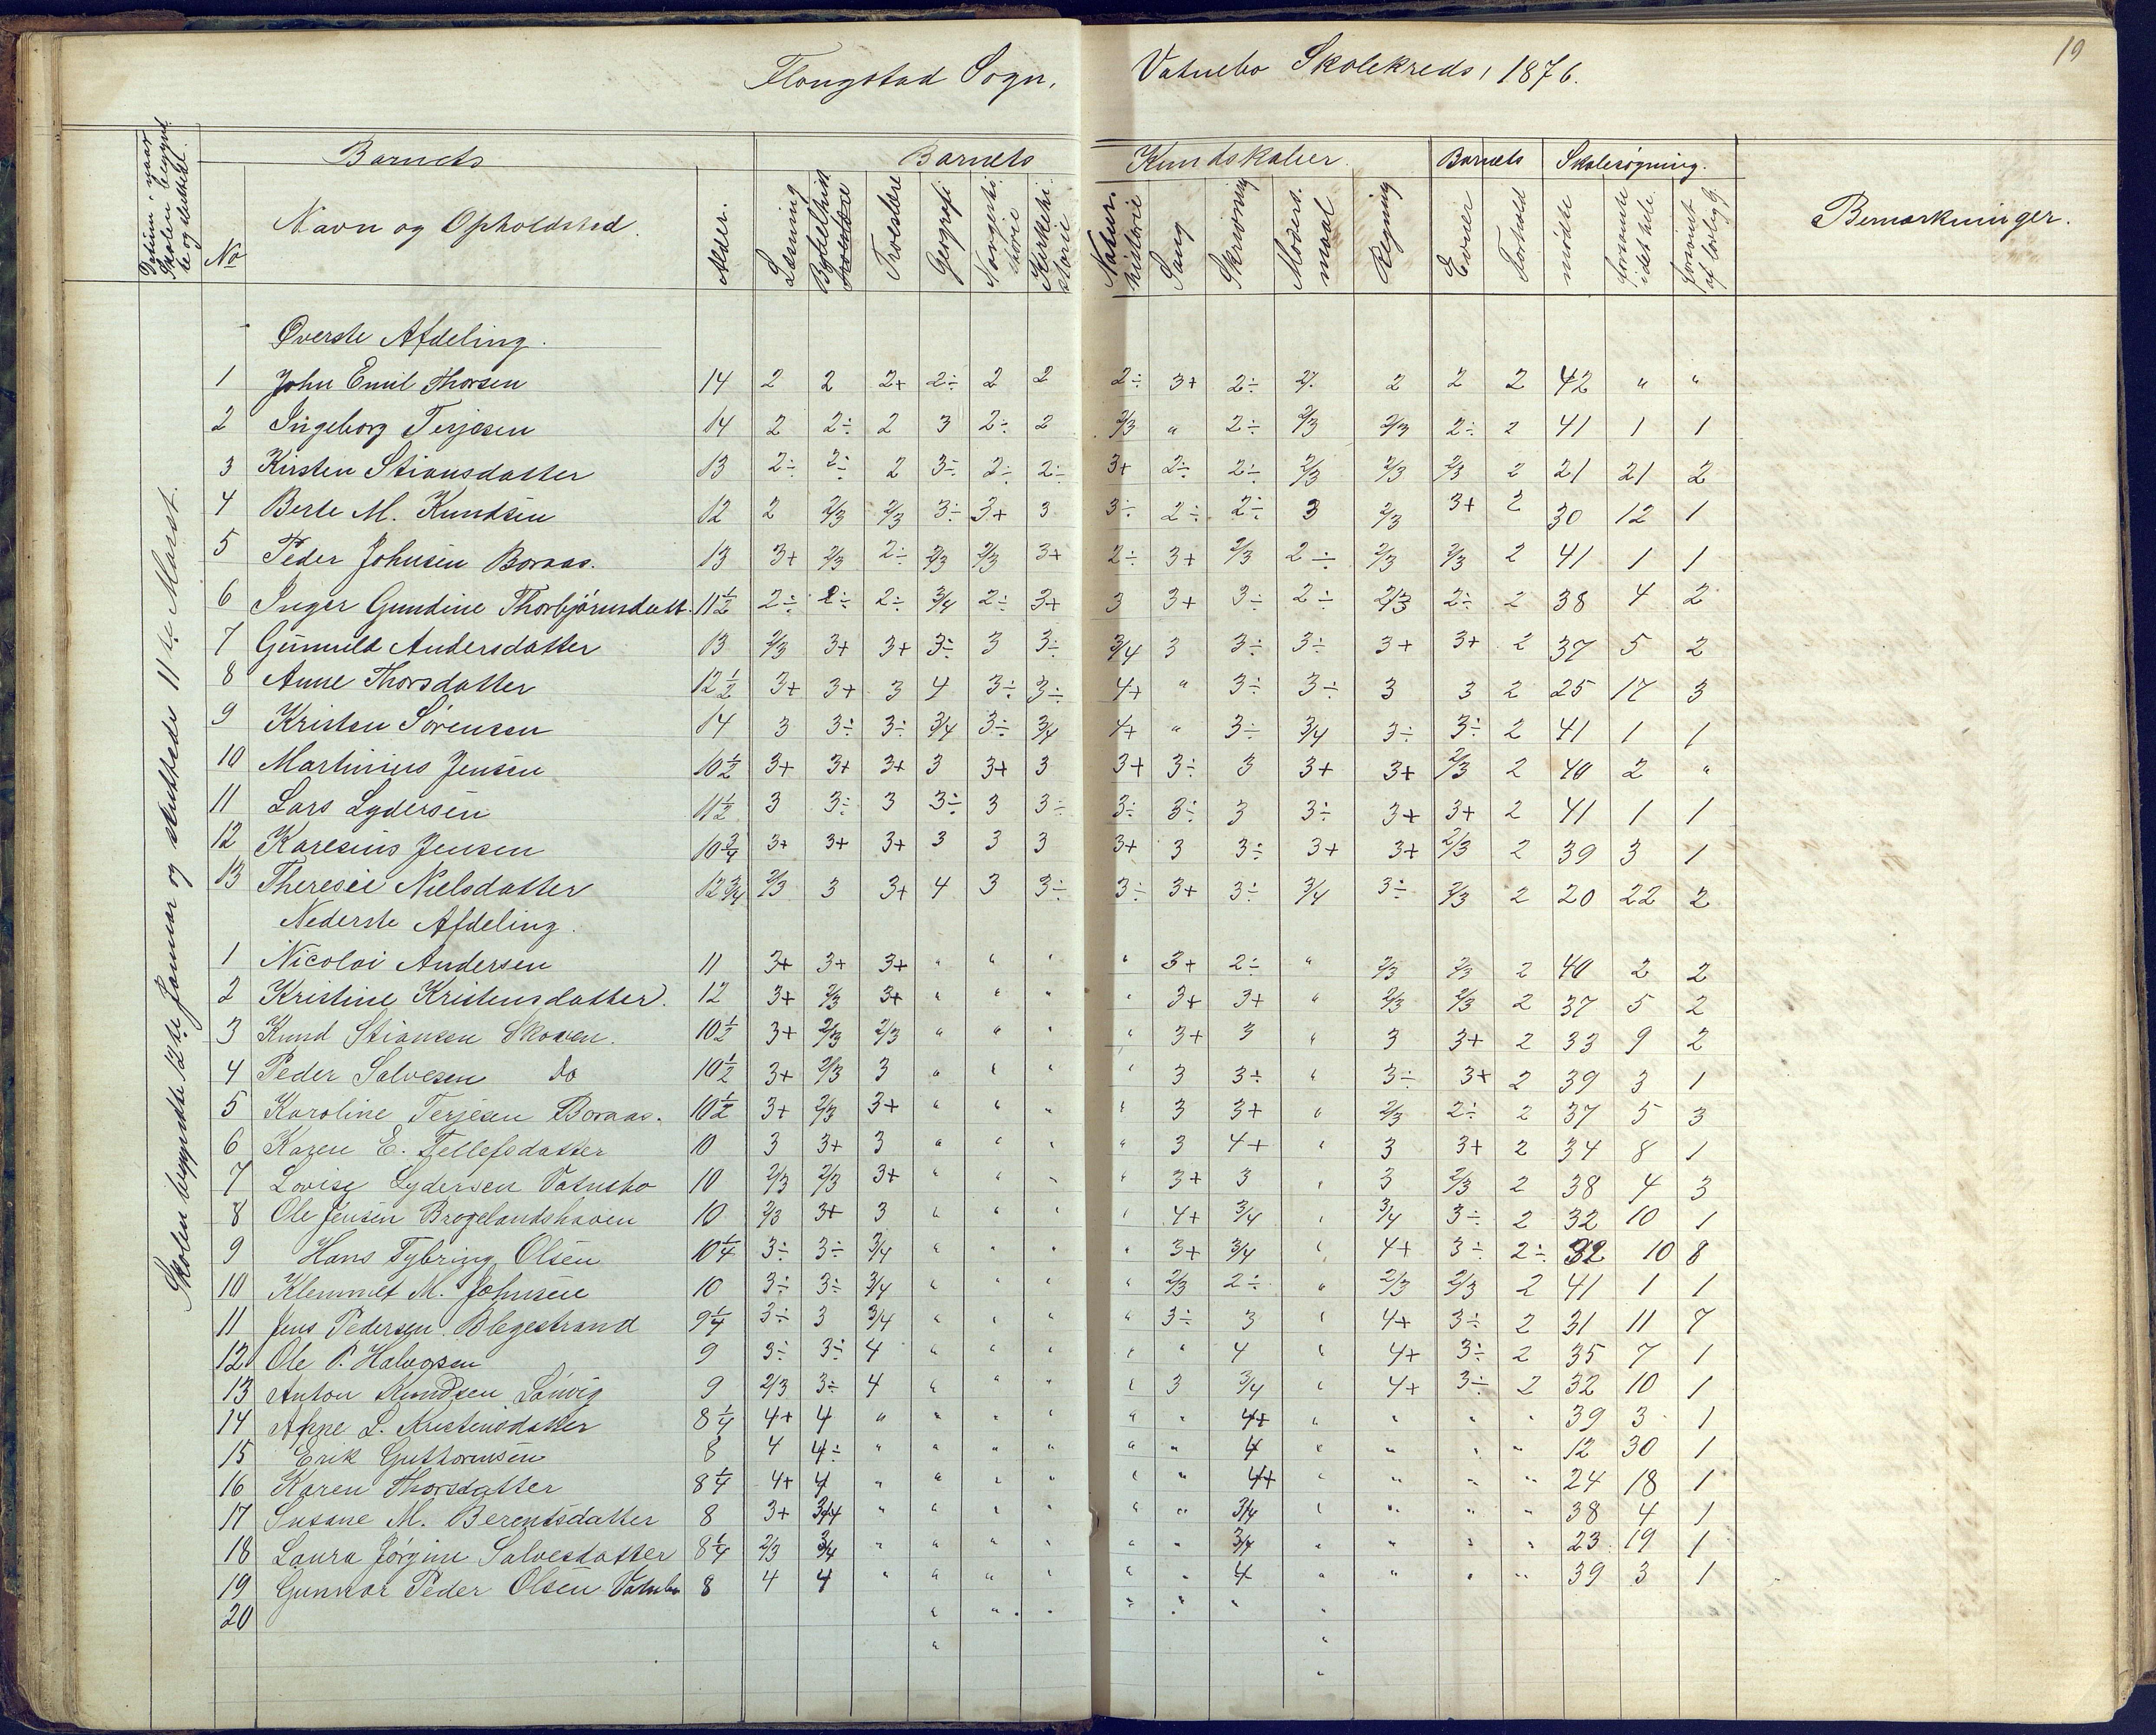 19
Flougstad Sogn, Vatnebo Skolekreds, 1876.
Datum, naar Skolen begynd te og sluttet.
Barnets Barnets Kundskaber. Barnets Skolesøgning.
No Navn og Opholdsted. Alder. Læsning Bibelhist Troeslære Geografi Norgeshistorie Kirkehistorie Naturhistorie Sang Skrivning Modersmaal Regning Evner Forhold mødte forsømte i det hele forsømt af lovlig G. Bemærkninger.
Skolen begyndte 12te Januar og sluttede 11te Marst.
Øverste Afdeling.
1 John Emil Thorsen 14 2 2 2+ 2÷ 2 2 2÷ 3+ 2÷ 2÷ 2 2 2 42 " "
2 Ingeborg Terjesen 14 2 2÷ 2 3 2÷ 2 2/3 " 2÷ 2/3 2/3 2÷ 2 41 1 1
3 Kirsten Stiansdatter 13 2÷ 2÷ 2 3÷ 2÷ 2÷ 3+ 2÷ 2÷ 2/3 2/3 2/3 2 21 21 2
4 Berte M. Knudsen 12 2 2/3 2/3 3÷ 3+ 3 3÷ 2÷ 2÷ 3 2/3 3+ 2 30 12 1
5 Peder Johnsen Boraas. 13 3+ 2/3 2÷ 2/3 2/3 3+ 2÷ 3+ 2/3 2÷ 2/3 2/3 2 41 1 1
6 Inger Gundine Thorbjørnsdatt. 11½ 2÷ 2÷ 2÷ 3/4 2÷ 3+ 3 3+ 3÷ 2÷ 2/3 2÷ 2 38 4 2
7 Gunnild Andersdatter 13 2/3 3+ 3+ 3÷ 3 3÷ 3/4 3 3÷ 3÷ 3+ 3+ 2 37 5 2
8 Anne Thorsdatter 12½ 3+ 3+ 3 4 3÷ 3÷ 4+ " 3÷ 3÷ 3 3 2 25 17 3
9 Kristen Sørensen 14 3 3÷ 3÷ 3/4 3÷ 3/4 4+ " 3÷ 3/4 3÷ 3÷ 2 41 1 1
10 Martinius Jensen 10½ 3+ 3+ 3+ 3 3+ 3 3+ 3÷ 3 3+ 3+ 2/3 2 40 2 "
11 Lars Lydersen 11½ 3 3÷ 3 3÷ 3 3÷ 3÷ 3÷ 3 3÷ 3+ 3+ 2 41 1 1
12 Karesius Jensen 10¾ 3+ 3+ 3+ 3 3 3 3+ 3 3÷ 3+ 3+ 2/3 2 39 3 1
13 Theresie Nielsdatter 12¾ 2/3 3 3+ 4 3 3÷ 3÷ 3+ 3÷ 3/4 3÷ 2/3 2 20 22 2
Nederste Afdeling.
1 Nicolai Andersen 11 3+ 3+ 3+ " " " " 3+ 2÷ " 2/3 2/3 2 40 2 2
2 Kristine Kristensdatter. 12 3+ 2/3 3+ " " " " 3+ 3+ " 2/3 2/3 2 37 5 2
3 Knud Stiansen Skoven. 10½ 3+ 2/3 2/3 " " " " 3+ 3 " 3 3+ 2 33 9 2
4 Peder Salvesen do 10½ 3+ 2/3 3 " " " " 3 3÷ " 3÷ 3+ 2 39 3 1
5 Karoline Terjesen Boraas. 10½ 3+ 2/3 3+ " " " " 3 3+ " 2/3 2÷ 2 37 5 3
6 Karen E. Tellefsdatter 10 3 3+ 3 " " " " 3 4+ " 3 3+ 2 34 8 1
7 Lovise Lydersen Vatnebo 10 2/3 2/3 3+ " " " " 3+ 3 " 3 2/3 2 38 4 3
8 Ole Jensen Brogelandshaven 10 2/3 3+ 3 " " " " 4+ 3/4 " 3/4 3÷ 2 32 10 1
9 Hans Tybring Olsen 10¼ 3÷ 3÷ 3/4 " " " " 3+ 3/4 " 4+ 3÷ 2÷ 32 10 8
10 Klemmet M. Johnsen 10 3÷ 3÷ 3/4 " " " " 2/3 2÷ " 2/3 2/3 2 41 1 1
11 Jens Pedersen Blegestrand 9¼ 3÷ 3 3/4 " " " " 3÷ 3 " 4+ 3÷ 2 31 11 7
12 Ole P. Halvorsen 9 3÷ 3÷ 4 " " " " " 4 " 4+ 3÷ 2 35 7 1
13 Anton Knudsen Lauvig 9 2/3 3÷ 4 " " " " 3 3/4 " 4+ 3÷ 2 32 10 1
14 Anne L. Kristensdatter 8¼ 4+ 4 " " " " " " 4+ " " " " 39 3 1
15 Erik Guthormsen 8 4 4÷ " " " " " " 4 " " " " 12 30 1
16 Karen Thorsdatter 8¼ 4+ 4 " " " " " " 4+ " " " " 24 18 1
17 Susane M. Berentsdatter 8 3+ 3/4 " " " " " " 3/4 " " " " 38 4 1
18 Laura Jørgine Salvesdatter 8¼ 2/3 3/4 " " " " " " 3/4 " " " " 23 19 1
19 Gunnar Peder Olsen Vatnebo 8 4 4 " " " " " " 4 " " " " 39 3 1
20 " " " " " " "
" "
"